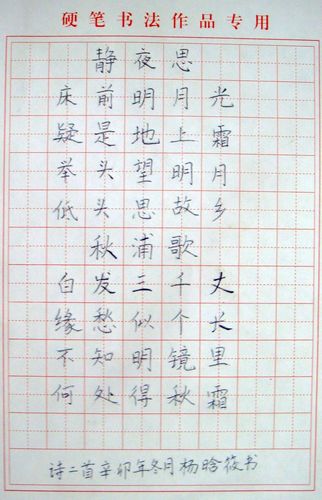 硬笔书法作品专用
静夜思
床前明月光
疑是地上霜
举头望明月
低头思故乡
秋浦歌
白发三千丈
缘愁似个长
不知明镜里
何处得秋霜
诗二首辛卯年冬月杨晗筱书